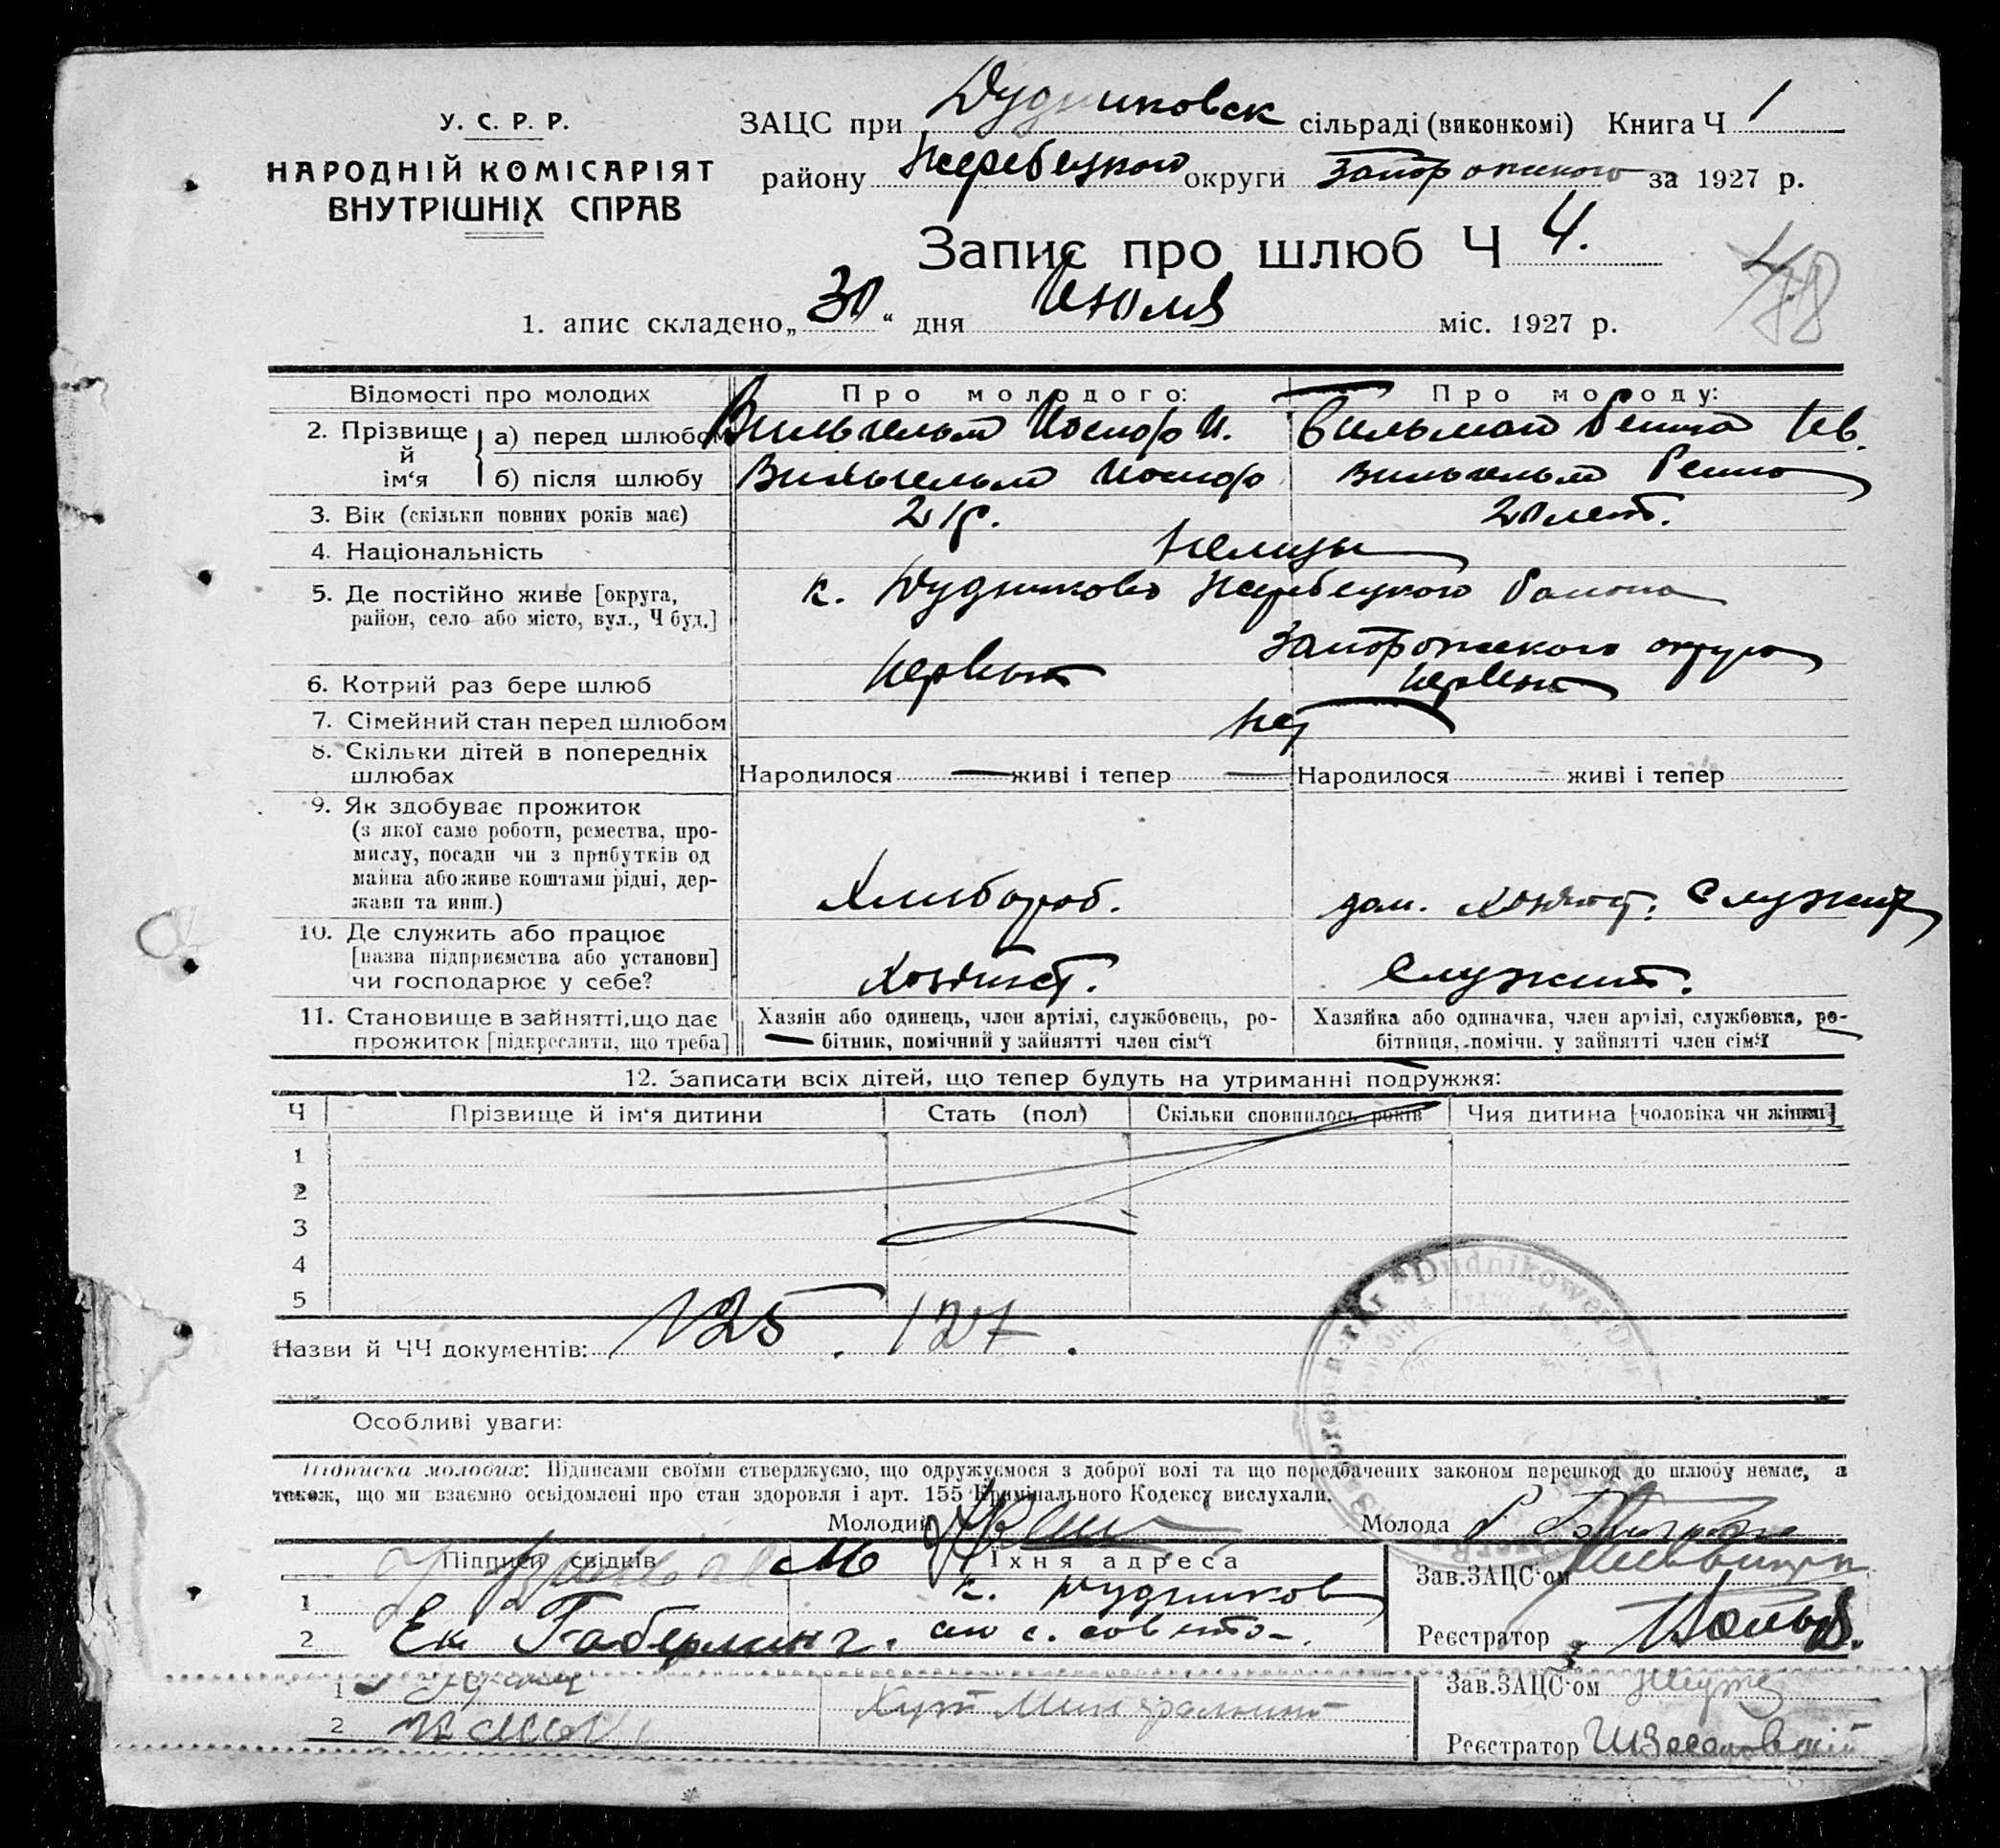 У. С. Р. Р.
НАРОДНІЙ КОМІСАРІЯТ
ВНУТРІШНІХ СПРАВ
ЗАЦС при Дудниковск сільраді (виконкомі) Книга Ч 1
району Жеребецкого округи Запорожского за 1927 р.
Запис про шлюб Ч 4.
1. апис складено „30“ дня Июля міс. 1927 р.
Відомості про молодих Про молодого: Про молоду:
2. Прізвище й ім‘я а) перед шлюбом Вильгельм Иосиф И. Гильман
б) після шлюбу Вильгельм Иосиф Вильгельм
3. Вік (скільки повних років має) 21 г. 20 лет.
4. Національність Немцы
5. Де постійно живе [округа,
район, село або місто, вул., Ч буд.]
к. Дудниково Жеребецкого района
Запорожского округа
6. Котрий раз бере шлюб Первый Первый
7. Сімейний стан перед шлюбом Нет
8. Скільки дітей в попередніх
шлюбах
Народилося — живі і тепер — Народилося живі і тепер
9. Як здобуває прожиток
(з якої саме роботи, ремества, про-
мислу, посади чи з прибутків од
майна або живе коштами рідні, дер-
жави та инш.)
Хлибороб. дом. хозяист. Служит
10. Де служить або працює
[назва підприємства або установи]
чи господарює у себе?
Хозяист. Служит.
11. Становище в зайнятті, що дає
прожиток [підкреслити, що треба]
Хазяін або одинець, член артілі, службовець, ро-
бітник, помічний у зайнятті член сім‘ї
Хазяйка або одиначка, член артілі, службовка, ро-
бітниця, помічн. у зайнятті член сім‘ї
12. Записати всіх дітей, що тепер будуть на утриманні подружжя:
Ч Прізвище й ім‘я дитини Стать (пол) Скільки сповнилось років Чия дитина [чоловіка чи жінки]
1
2
3
4
5
Назви й ЧЧ документів: 125. 127.
Dudnikower
Особливі уваги:
Підписка молодих: Підписами своїми стверджуємо, що одружуємося з доброї волі та що передбачених законом перешкод до шлюбу немає, а
також, що ми взаємно освідомлені про стан здоровля і арт. 155 Кримінального Кодексу вислухали.
Молодий Молода
Підписи свідків Їхня адреса Зав.ЗАЦС‘ом
1 к. Дудников
2 Ек Габерлинг. Реєстратор
1 Зав.ЗАЦС‘ом
2 Реєстратор